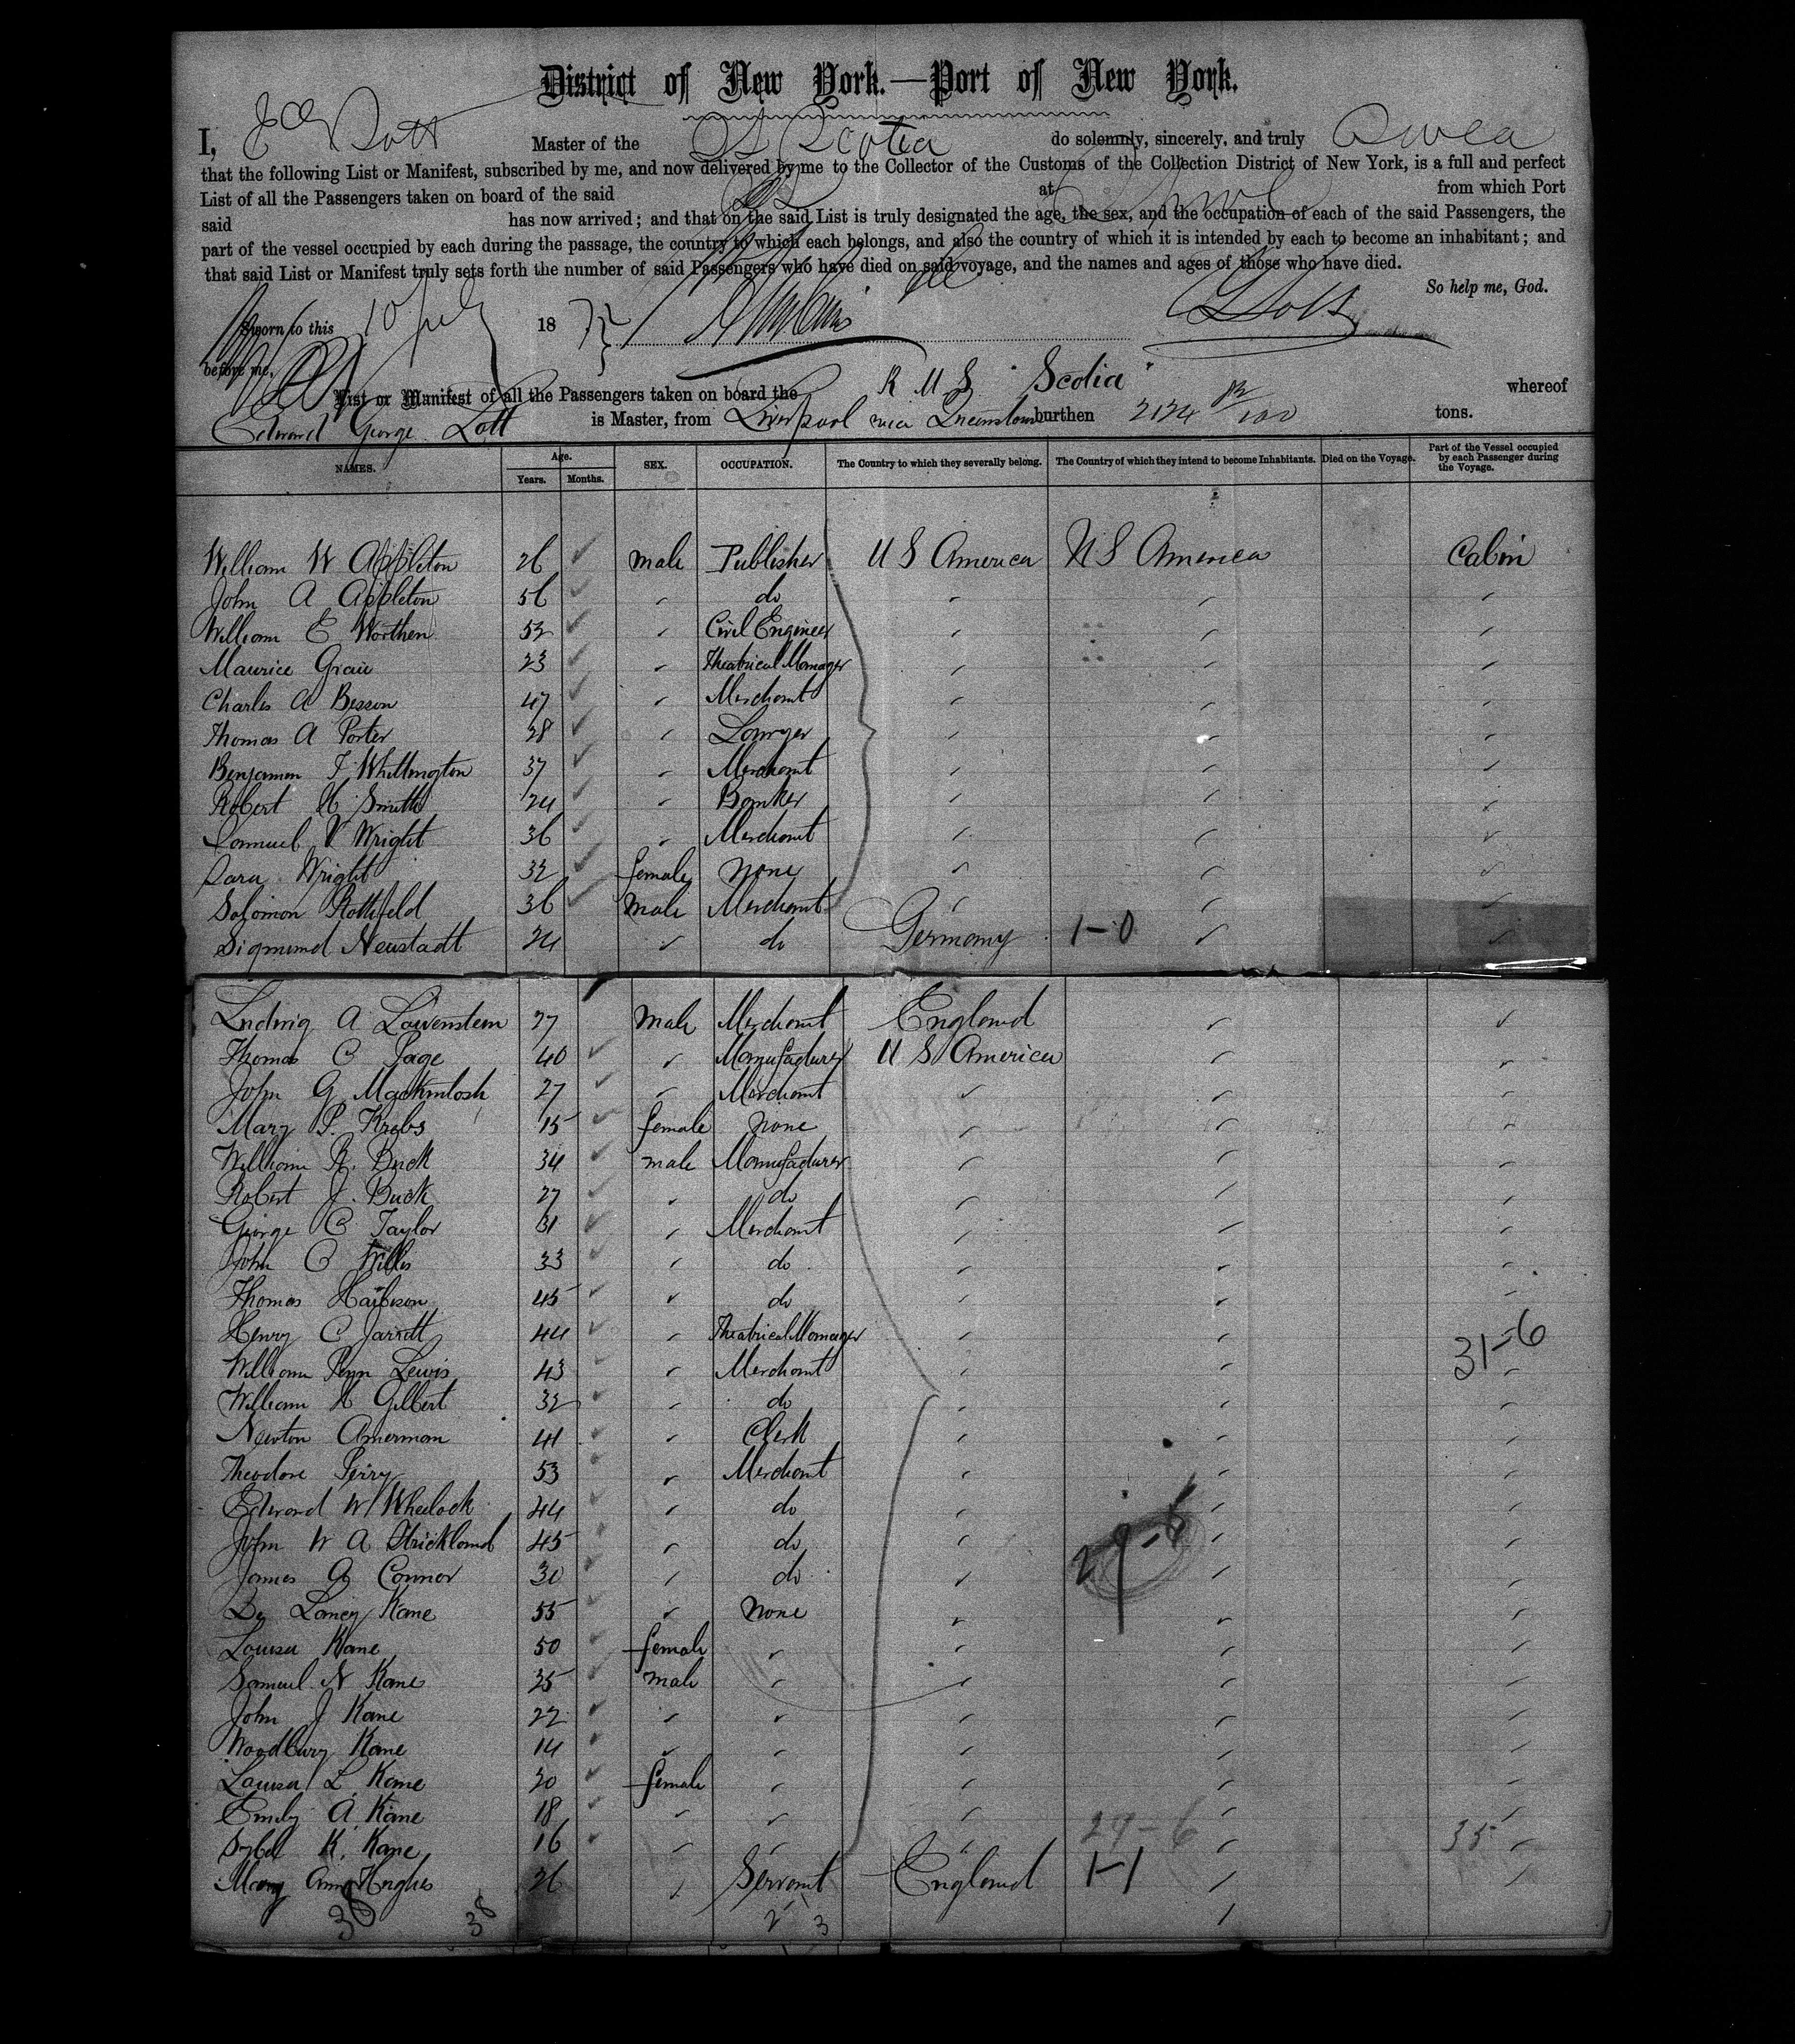 District of New York.—Port of New York.
I, Lott Master of the SS Scotia do solemnly, sincerely, and truly Swea
that the following List or Manifest, subscribed by me, and now delivered by me to the Collector of the Customs of the Collection District of New York, is a full and perfect
List of all the Passengers taken on board of the said at from which Port
said has now arrived; and that on the said List is truly designated the age, the sex, and the occupation of each of the said Passengers, the
part of the vessel occupied by each during the passage, the country to which each belongs, and also the country of which it is intended by each to become an inhabitant; and
that said List or Manifest truly sets forth the number of said Passengers who have died on said voyage, and the names and ages of those who have died.
So help me, God.
Sworn to this 10 July 1872
before me,
List or Manifest of all the Passengers taken on board the R M S "Scotia" whereof
Edward George Lott is Master, from Liverpool via Queenstown burthen 2124 /100 tons.
NAMES. Age. Years. Months. SEX. OCCUPATION. The Country to which they severally belong. The Country of which they intend to become Inhabitants. Died on the Voyage. Part of the Vessel occupied by each Passenger during the Voyage.
William W Appleton 26 male Publisher U S America U S America Cabin
John A Appleton 56 do
William E Worthen 52 Civil Engineer
Maurice Grau 23 Theatrical Manager
Charles A Besson 47 Merchant
Thomas A Porter 28 Lawyer
Benjamin F Whillington 37 Merchant
Robert H Smith 24 Banker
Samuel V Wright 36 Merchant
Sara Wright 32 female None
Solomon Rothfeld 36 Male Merchant
Sigmund Neustadt 24 do Germany 1-0
Ludwig A Lowenstein 27 Male Merchant England
Thomas C Page 40 Manufacturer U S America
John G Mackintosh 27 Merchant
Mary P. Krebs 15 female none
William R. Buck 34 male Manufacturer
Robert J. Buck 27 do
George C Taylor 31 Merchant
John C Willis 33 do
Thomas Harbison 45 do
Henry C Jarrett 44 Theatrical Manager 31-6
William Penn Lewis 43 Merchant
William H Gilbert 32 do
Newton Amerman 41 Clerk
Theodore Perry 53 Merchant
Edward W Wheelock 44 do
John W A Strickland 45 do
James G Connor 30 do 29-6
De Lancey Kane 55 None
Louisa Kane 50 female
Samuel N Kane 25 male
John J Kane 22
Woodbury Kane 14
Louisa L Kane 20 female
Emily A. Kane 18
Sybil K. Kane 16 29-6 35
Mary Ann Hughes 26 Servant England 1-1
38 38 2 3